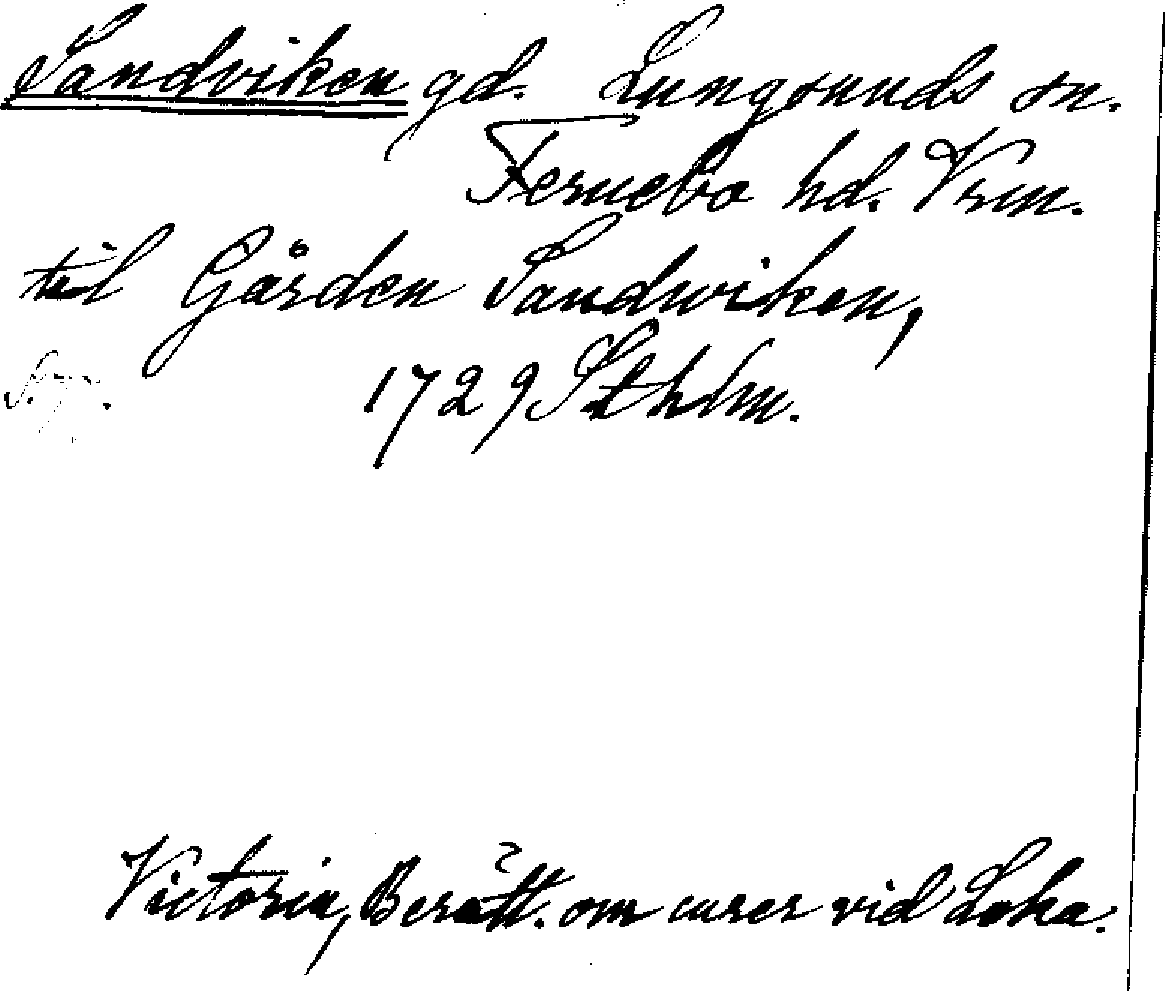 Sandviken gd. Lungsunds sn.
Fernebo hd. Vrm.
til Gården Sandwiken,
1729 Sthlm.
Victorin, Berätt. om curer vid Loka.